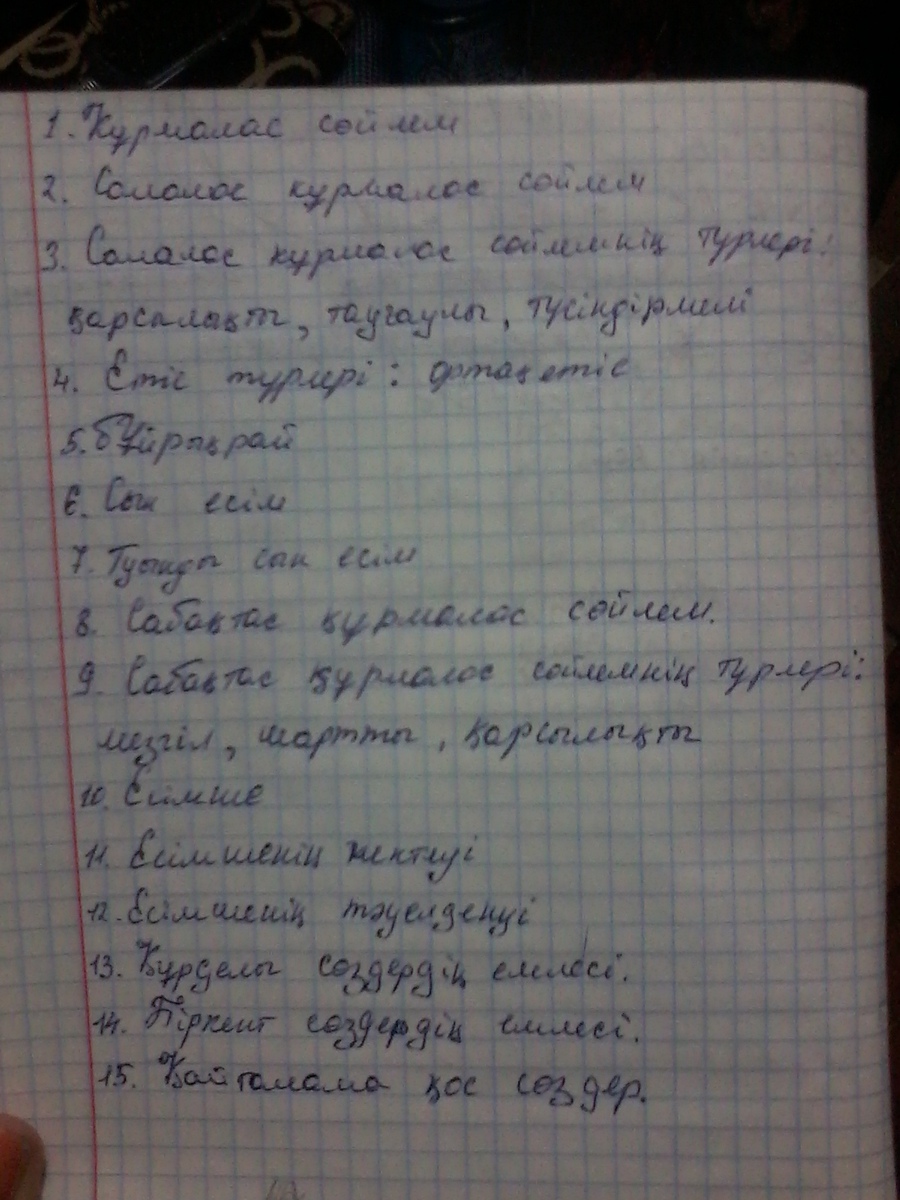 1. Құрмалас сөйлем
2. Салалас құрмалас сөйлем
3. Салалас құрмалас сөйлемнің түрлері:
қарсылықты, талғаулы, түсіндірмелі
4. Етіс түрлері: ортақ етіс
5. Бұйрық рай
6. Сын есім
7. Туынды сын есім
8. Сабақтас құрмалас сөйлем.
9. Сабақтас құрмалас сөйлемнің түрлері:
мезгіл, шартты, қарсылықты
10. Есімше
11. Есімшенің жіктелуі
12. Есімшенің тәуелденуі
13. Күрделі сөздердің емлесі.
14. Біріккен сөздердің емлесі.
15. Қайталама қос сөздер.